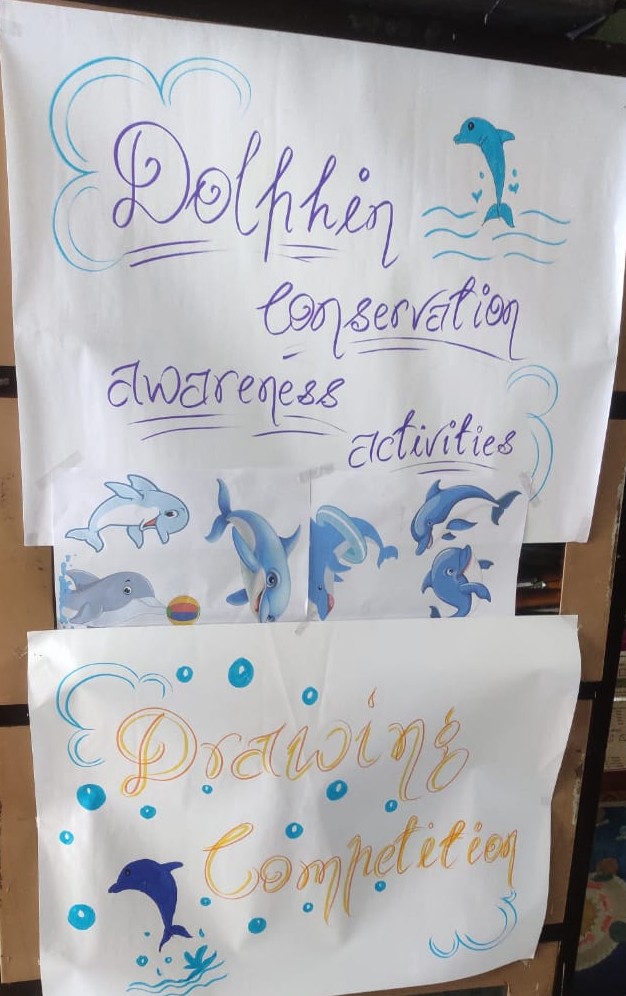 Dolphin
Conservation
awareness
activities
Drawing
Competition